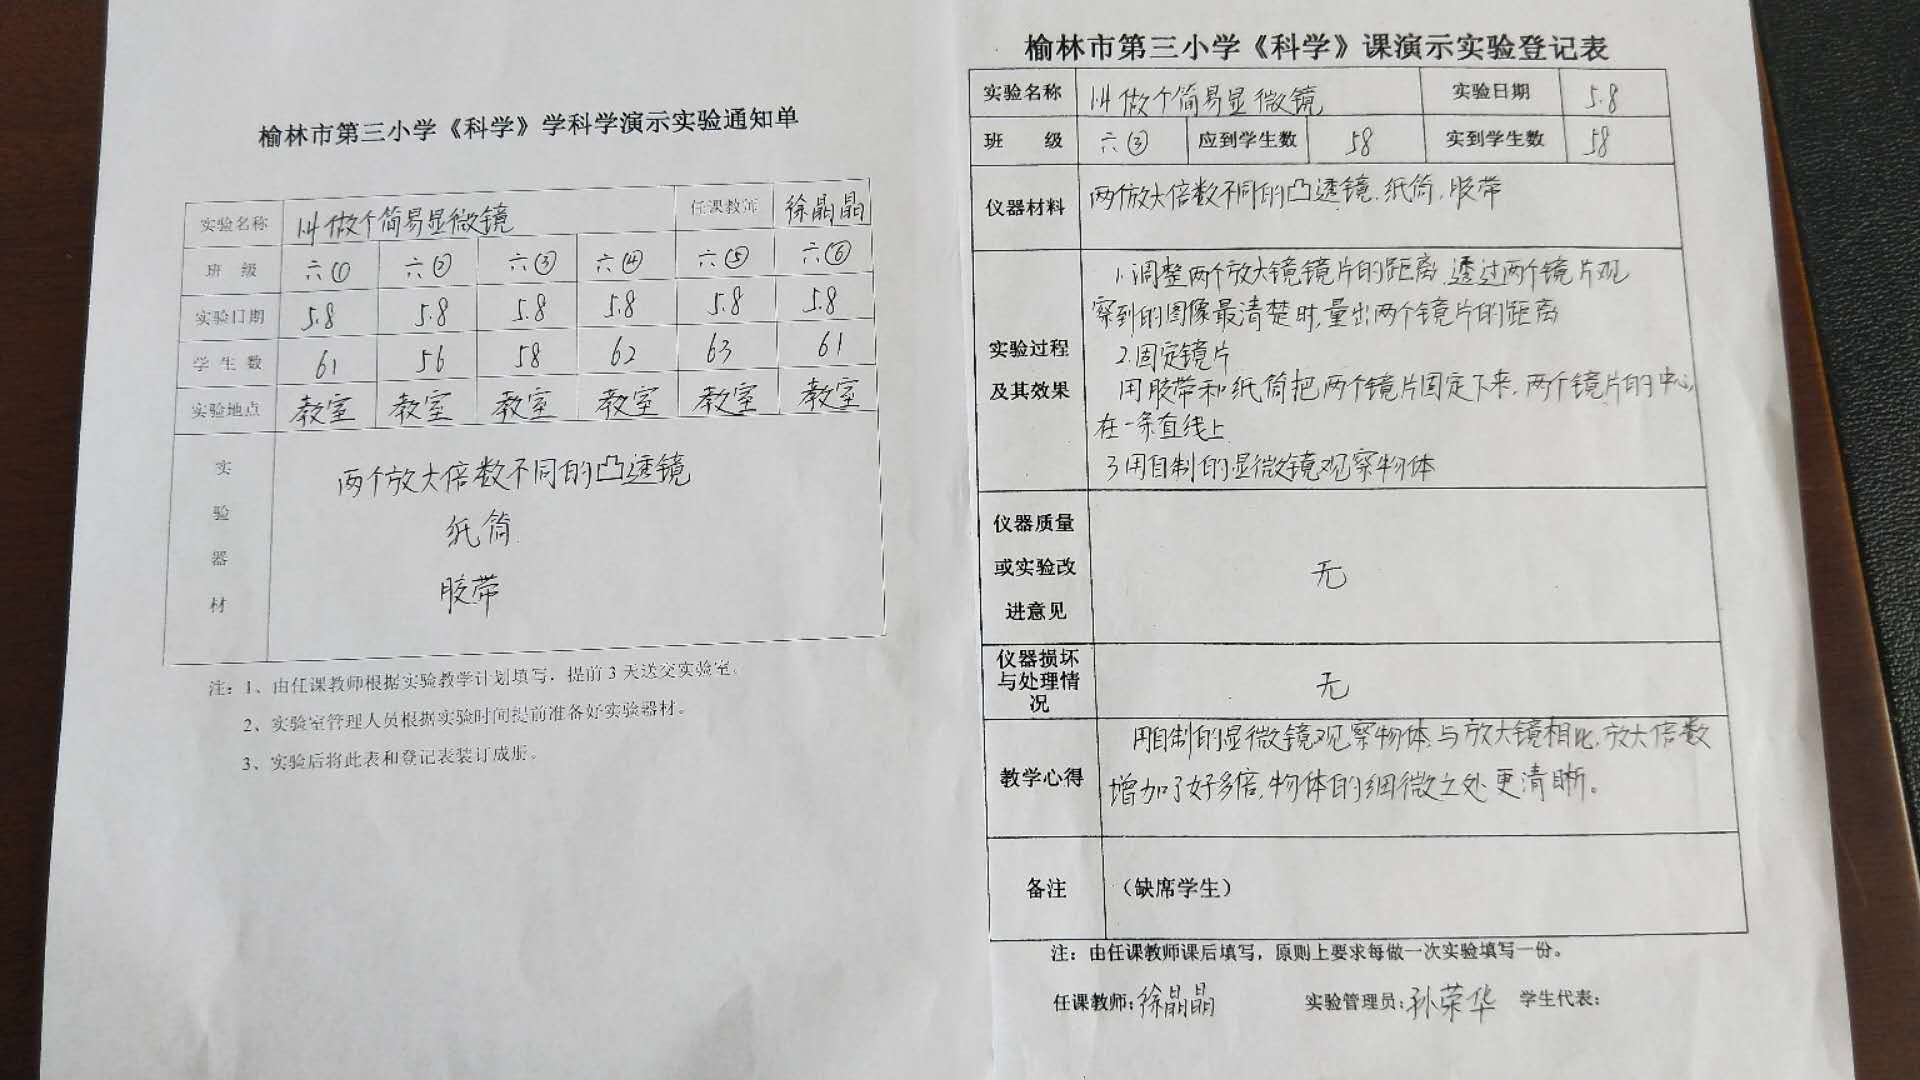 榆林市第三小学《科学》学科学演示实验通知单
实验名称 1.4 做个简易显微镜 任课教师 徐晶晶
班 级 六① 六② 六③ 六④ 六⑤ 六⑥
实验日期 5.8 5.8 5.8 5.8 5.8 5.8
学 生 数 61 56 58 62 63 61
实验地点 教室 教室 教室 教室 教室 教室
实验器材
两个放大倍数不同的凸透镜
纸筒
胶带
注：1、由任课教师根据实验教学计划填写，提前3天送交实验室。
2、实验室管理人员根据实验时间提前准备好实验器材。
3、实验后将此表和登记表装订成册。
榆林市第三小学《科学》课演示实验登记表
实验名称 1.4 做个简易显微镜 实验日期 5.8
班 级 六③ 应到学生数 58 实到学生数 58
仪器材料 两个放大倍数不同的凸透镜.纸筒.胶带
实验过程
及其效果
1.调整两个放大镜镜片的距离.透过两个镜片观
察到的图像最清楚时,量出两个镜片的距离
2.固定镜片
用胶带和纸筒把两个镜片固定下来.两个镜片的中心
在一条直线上
3用自制的显微镜观察物体
仪器质量
或实验改
进意见
无
仪器损坏
与处理情
况
无
教学心得
用自制的显微镜观察物体.与放大镜相比.放大倍数
增加了好多倍.物体的细微之处更清晰。
备注 （缺席学生）
注：由任课教师课后填写，原则上要求每做一次实验填写一份。
任课教师:徐晶晶 实验管理员:孙荣华 学生代表: